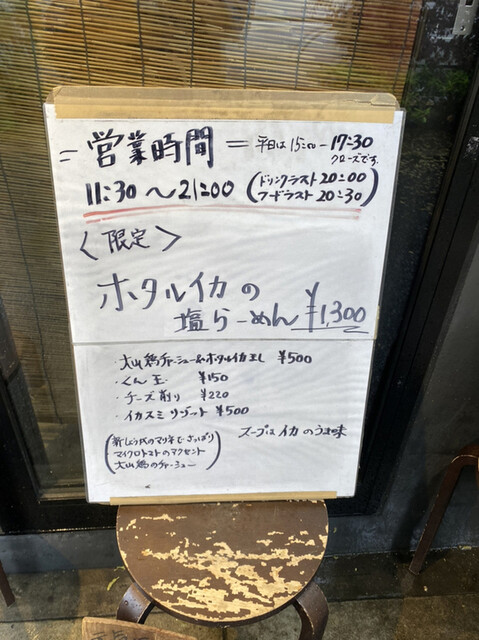 = 営業時間 = 平日は15:00-17:30
クローズです。
11:30〜21:00 (ドリンクラスト20:00
フードラスト20:30)
〈限定〉
ホタルイカの
塩らーめん ¥1,300
・大山鶏チャーシュー&ホタルイカ玉し ¥500
・くん玉 ¥150
・チーズ削り ¥220
・イカスミリゾット ¥500
スープはイカのうま味
(新しょう
さっぱり
マイクロトマトのアクセント
大山鶏のチャーシュー)